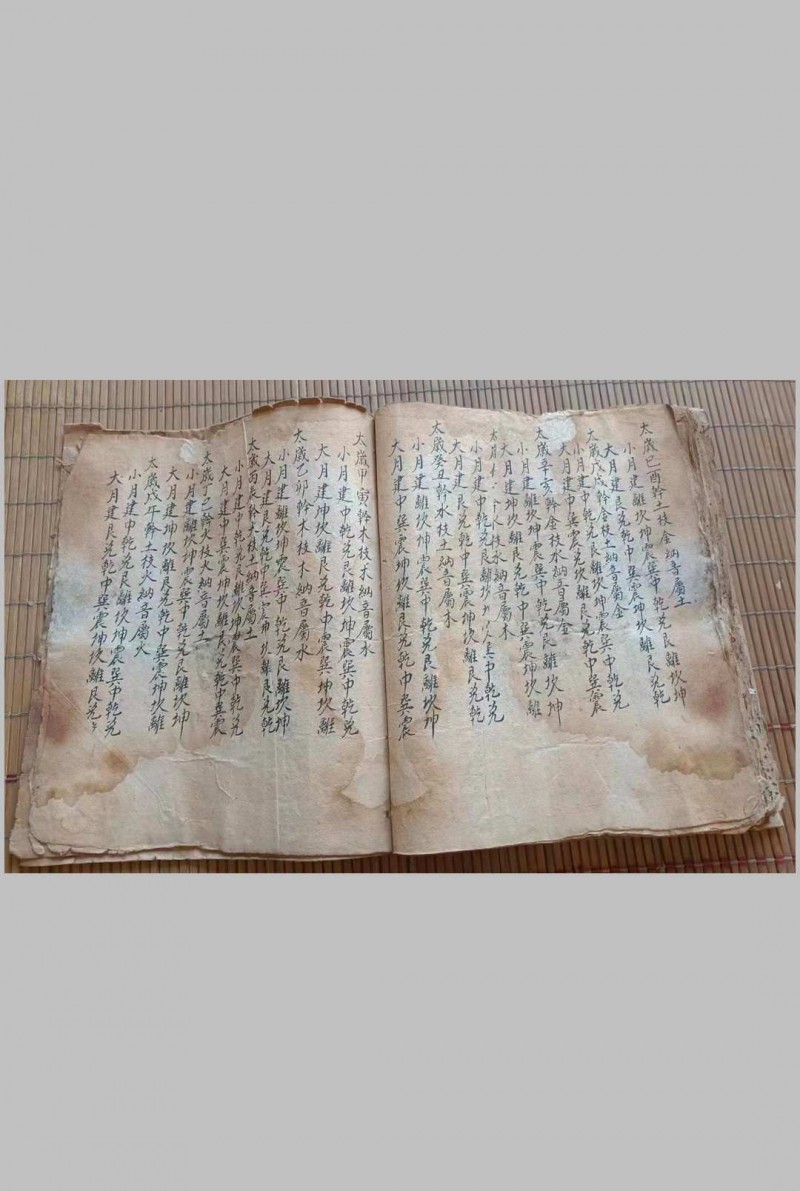 太歲己酉幹土枝金納音屬土
小月建離坎坤震巽中乾兌艮離坎坤
大月建艮兌乾中巽震坤坎離艮兌乾
太歲戊戌幹金枝土納音屬金
小月建中乾兌艮離坎坤震巽中乾兌
大月建中巽震坤坎離艮兌乾中巽震
太歲辛亥幹金枝水納音屬金
小月建離坎坤震巽中乾兌艮離坎坤
大月建坤坎離艮兌乾中巽震坤坎離
水枝水納音屬木
小月建中乾兌艮離坎 中乾兌
大月建艮兌乾中巽震坤坎離艮兌乾
太歲癸丑幹水枝土納音屬木
小月建離坎坤震巽中乾兌艮離坎坤
大月建中巽震坤坎離艮兌乾中巽震
太歲甲寅幹木枝木納音屬水
小月建中乾兌艮離坎坤震巽中乾兌
大月建坤坎離艮兌乾中震巽坤坎離
太歲乙卯幹木枝木納音屬水
小月建離坎坤震巽中乾兌艮離坎坤
大月建艮兌乾中巽震坤坎離艮兌乾
太歲丙辰幹火枝土納音屬土
小月建中乾兌艮離坎坤震巽中乾兌
大月建中巽震坤坎離艮兌乾中巽震
太歲丁巳幹火枝火納音屬土
小月建離坎坤震巽中乾兌艮離坎坤
大月建坤坎離艮兌乾中巽震坤坎離
太歲戊午幹土枝火納音屬火
小月建中乾兌艮離坎坤震巽中乾兌
大月建艮兌乾中巽震坤坎離艮兌